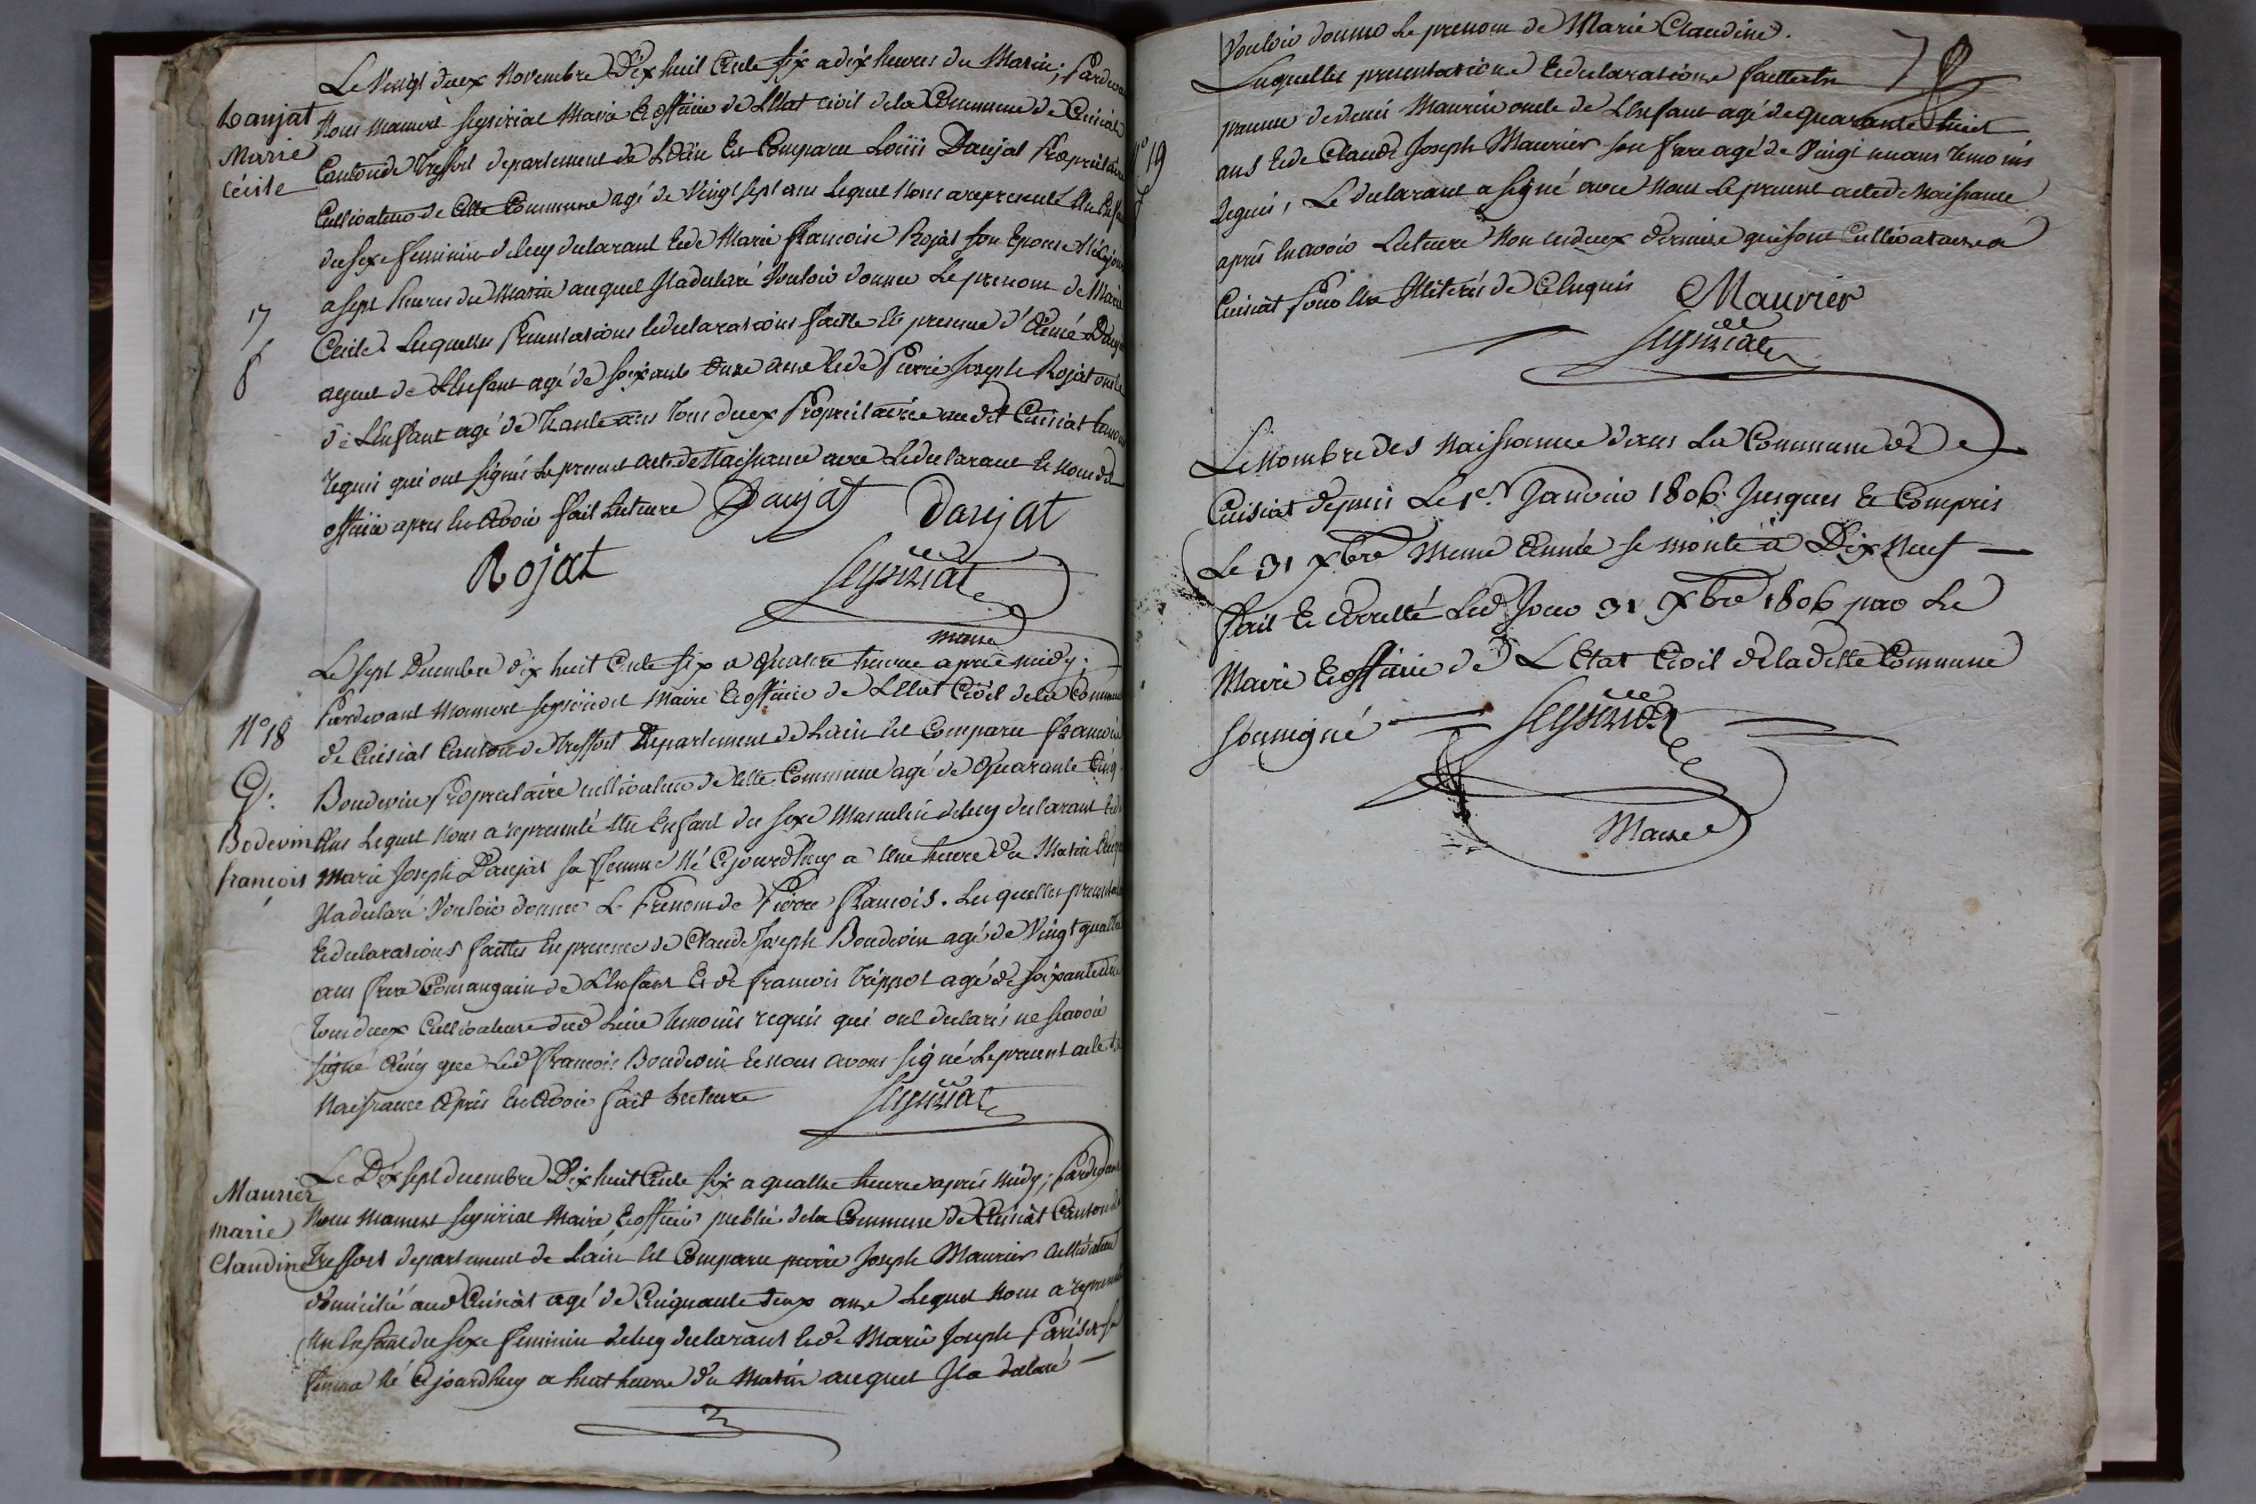 Danjat
Marie
Cécile
17
Le Vingt deux Novembre Dix huit Cents six a dix heures du Matin; Pardevant
Nous Mamert Seyzeriat Maire Et officier de L'Etat civil de la Commune de Cuisiat
Canton de Treffort departement de L'Ain Est Comparu Louis Danjat Proprietaire
Cultivateur de Cette Commune agé de Vingt sept ans Lequel Nous a représenté Un Enfant
du sexe feminin de luy declarant et de Marie francoise Rojat son Epouse Né Cejour
a sept heures du Matin auquel Il a declaré Vouloir donner Le prenom de Marie
Cécile. Lesquelles Presentations et declarations faitte En presence d'Aimé Danjat
ayeul de L'Enfant agé de soixante onze ans et de Pierre Joseph Rojat oncle
de L'Enfant agé de Trante ans Tous deux Proprietaires au dit Cuisiat temoins
requis qui ont signés le present acte de Naissance avec Le declarant Et nous dt
officier apres En Avoir fait Lecture Danjat Danjat
Rojat Seyzeriat
maire
N° 18
Bodevin
françois
Le sept Decembre dix huit Cents six a Quatre heures après midy;
Pardevant Mamert Seyzeriat Maire Et officier de L'Etat Civil de la Commune
de Cuisiat Canton de Treffort Département de Lain Est Comparu francois
Boudevin Proprietaire cultivateur de cette Commune agé de Quarante Cinq
Ans Lequel Nous a représenté Un Enfant du sexe Masculin de luy declarant Et de
Marie Joseph Danjat sa femme Né Cejourdhuy a Une heure du Matin auquel
Il a declaré Vouloir donner Le Prenom de Pierre francois. Lesquelles presentations
Et declarations faittes En presence de Claude Joseph Boudevin agé de Vingt quatre
ans frere Consanguin de L'Enfant Et de francois Trippot agé de soixante
Tous deux Cultivateurs dud Lieu Temoins requis qui ont declarés ne scavoir
signé Ainsy que Led francois Boudevin Et nous avons signé Le present acte de
Naissance Après En Avoir fait Lecture Seyzeriat
Maurier
marie
Claudine
Le Dix sept decembre Dix huit Cents six a quattre heures après midy; Pardevant
Nous Mamert Seyzeriat Maire Et officier public de la Commune de Cuisiat Canton de
Treffort departement de Lain Est Comparu pierre Joseph Maurier Cultivateur
domicilié aud Cuisiat agé de Cinquante deux ans Lequel Nous a représenté
Un Enfant du sexe feminin de luy declarant Et de Marie Joseph Pariset sa
femme Né Cejourdhuy a huit heures du Matin auquel Il a declaré
7
N° 19
Vouloir donner Le prenom de Marie Claudine.
Lesquelles presentations Et declarations faittes En
presence de denis Maurier oncle de L'Enfant agé de quarante huit
ans Et de Claude Joseph Maurier son frere agé de Vingt un ans Temoins
requis, Le declarant a signé avec Nous Le present acte de Naissance
après En avoir Lecture Non les deux derniers qui sont Cultivateurs a
Cuisiat pour Etre Illiterés de Ce Enquis Maurier
Seyzeriat
Le Nombre des Naissance dans La Commune de
Cuisiat depuis Le 1er Janvier 1806 Jusques Et Compris
Le 31 Xbre Meme Année se monte a Dix Neuf
fait Et Arretté Led Jour 31 Xbre 1806 par Le
Maire Et officier de L'Etat Civil de ladite Commune
soussigné Seyzeriat
Maire